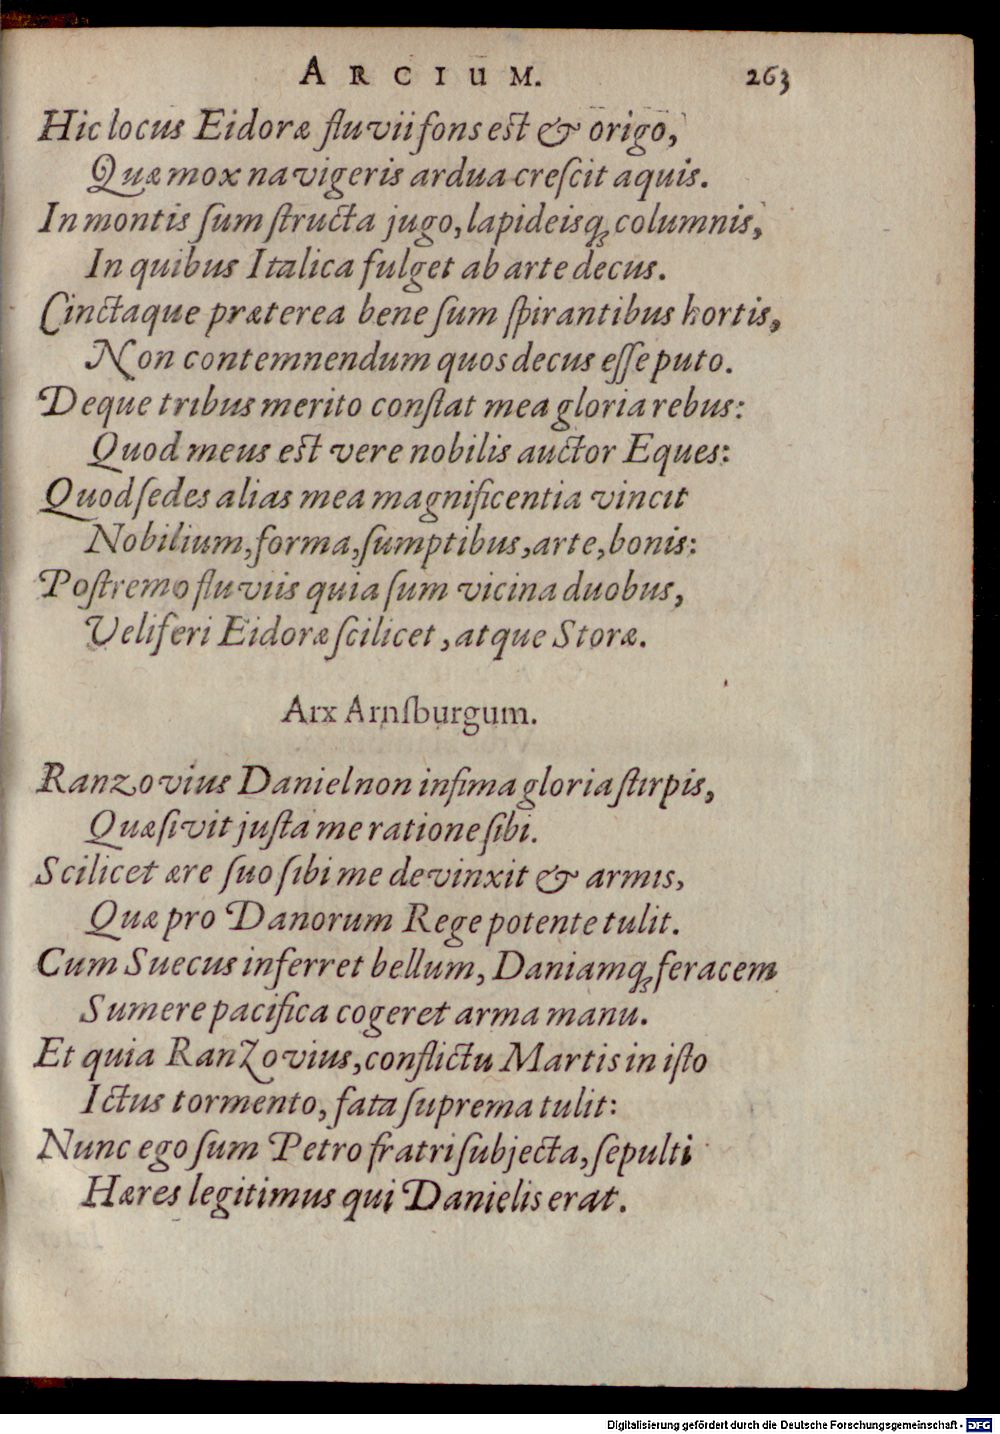 ARCIUM. 263
Hic locus Eidoræ fluvii fons est & origo,
Quæ mox navigeris ardua creſcit aquis.
In montis ſum ſtructa jugo, lapideisq́; columnis,
In quibus Italica fulget ab arte decus.
Cinctaque præterea bene ſum ſpirantibus hortis,
Non contemnendum quos decus eſſe puto.
Deque tribus merito conſtat mea gloria rebus:
Quod meus est vere nobilis auctor Eques:
Quod ſedes alias mea magnificentia vincit
Nobilium, forma, ſumptibus, arte, bonis:
Poſtremo fluviis quia ſum vicina duobus,
Veliferi Eidoræ ſcilicet, atque Storæ.
Arx Arnſburgum.
Ranzovius Daniel non infima gloria ſtirpis,
Quæſivit juſta me ratione ſibi.
Scilicet ære ſuo ſibi me devinxit & armis,
Quæ pro Danorum Rege potente tulit.
Cum Suecus inferret bellum, Daniamq́; feracem
Sumere pacifica cogeret arma manu.
Et quia Ranzovius, conflictu Martis in iſto
Ictus tormento, fata ſuprema tulit:
Nunc ego ſum Petro fratri ſubjecta, ſepulti
Hæres legitimus qui Danielis erat.
Digitalisierung gefördert durch die Deutsche Forschungsgemeinschaft - DFG